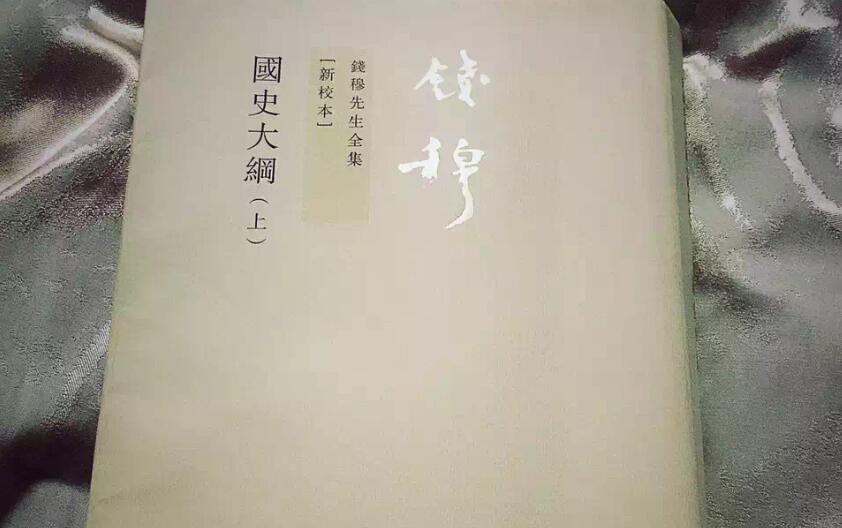 錢穆
錢穆先生全集
[新校本]
國史大綱(上)